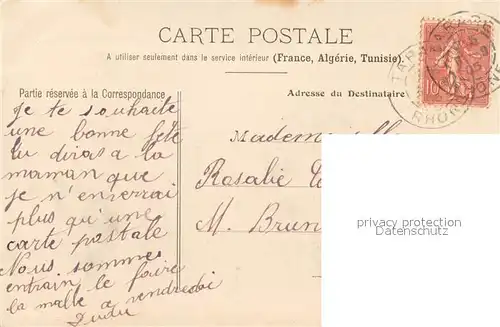 CARTE POSTALE
A utiliser seulement dans le service intérieur (France, Algérie, Tunisie).
Partie réservée à la Correspondance
Adresse du Destinataire
Je te souhaite
une bonne fête
tu diras a ta
maman que
je n'enverrai
plus qu'une
carte postale
Nous sommes
entrain le foire
la malle a vendredi
Dudu
Mademoiselle
Rosalie
M. Brun
10
TARA
RHONE
privatsammlerobject
privatesammlerobject